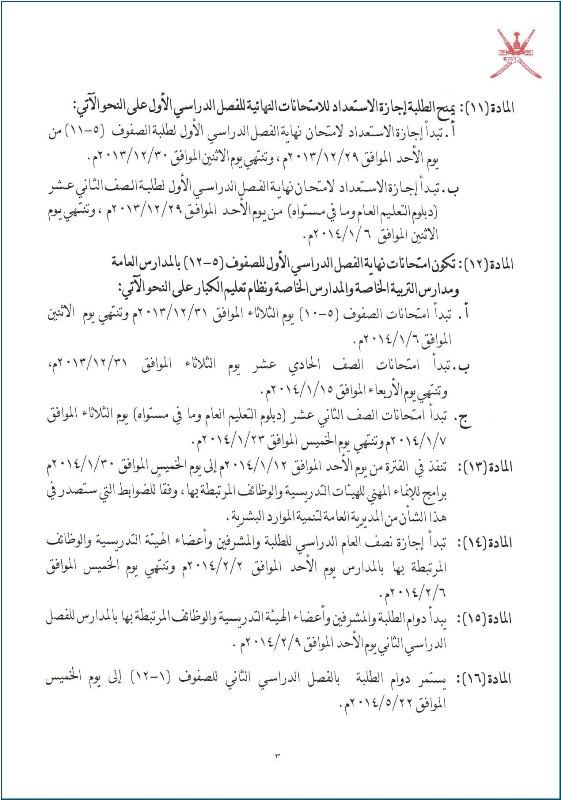 المادة (١١): يمنح الطلبة إجازة الاستعداد للامتحانات النهائية للفصل الدراسي الأول على النحو الآتي:
أ. تبدأ إجازة الاستعداد لامتحان نهاية الفصل الدراسي الأول لطلبة الصفوف (٥-١١) من
يوم الأحد الموافق ٢٠١٣/١٢/٢٩م، وتنتهي يوم الاثنين الموافق ٢٠١٣/١٢/٣٠م.
ب. تبدأ إجازة الاستعداد لامتحان نهاية الفصل الدراسي الأول لطلبة الصف الثاني عشر
(دبلوم التعليم العام وما في مستواه) من يوم الأحد الموافق ٢٠١٣/١٢/٢٩م ، وتنتهي يوم
الاثنين الموافق ٢٠١٤/١/٦م.
المادة (١٢): تكون امتحانات نهاية الفصل الدراسي الأول للصفوف (٥-١٢) بالمدارس العامة
ومدارس التربية الخاصة والمدارس الخاصة ونظام تعليم الكبار على النحو الآتي:
أ. تبدأ امتحانات الصفوف (٥-١٠) يوم الثلاثاء الموافق ٢٠١٣/١٢/٣١م وتنتهي يوم الاثنين
الموافق ٢٠١٤/١/٦م.
ب. تبدأ امتحانات الصف الحادي عشر يوم الثلاثاء الموافق ٢٠١٣/١٢/٣١م،
وتنتهي يوم الأربعاء الموافق ٢٠١٤/١/١٥م.
ج. تبدأ امتحانات الصف الثاني عشر (دبلوم التعليم العام وما في مستواه) يوم الثلاثاء الموافق
٢٠١٤/١/٧م وتنتهي يوم الخميس الموافق ٢٠١٤/١/٢٣م.
المادة (١٣): تنفذ في الفترة من يوم الأحد الموافق ٢٠١٤/١/١٢م إلى يوم الخميس الموافق ٢٠١٤/١/٣٠م
برامج للإنماء المهني للهيئات التدريسية والوظائف المرتبطة بها ، وفقا للضوابط التي ستصدر في
هذا الشأن من المديرية العامة لتنمية الموارد البشرية.
المادة (١٤): تبدأ إجازة نصف العام الدراسي للطلبة والمشرفين وأعضاء الهيئة التدريسية والوظائف
المرتبطة بها بالمدارس يوم الأحد الموافق ٢٠١٤/٢/٢م وتنتهي يوم الخميس الموافق
٢٠١٤/٢/٦م.
المادة (١٥): يبدأ دوام الطلبة والمشرفين وأعضاء الهيئة التدريسية والوظائف المرتبطة بها بالمدارس للفصل
الدراسي الثاني يوم الأحد الموافق ٢٠١٤/٢/٩م .
المادة (١٦): يستمر دوام الطلبة بالفصل الدراسي الثاني للصفوف (١-١٢) إلى يوم الخميس
الموافق ٢٠١٤/٥/٢٢م.
٣